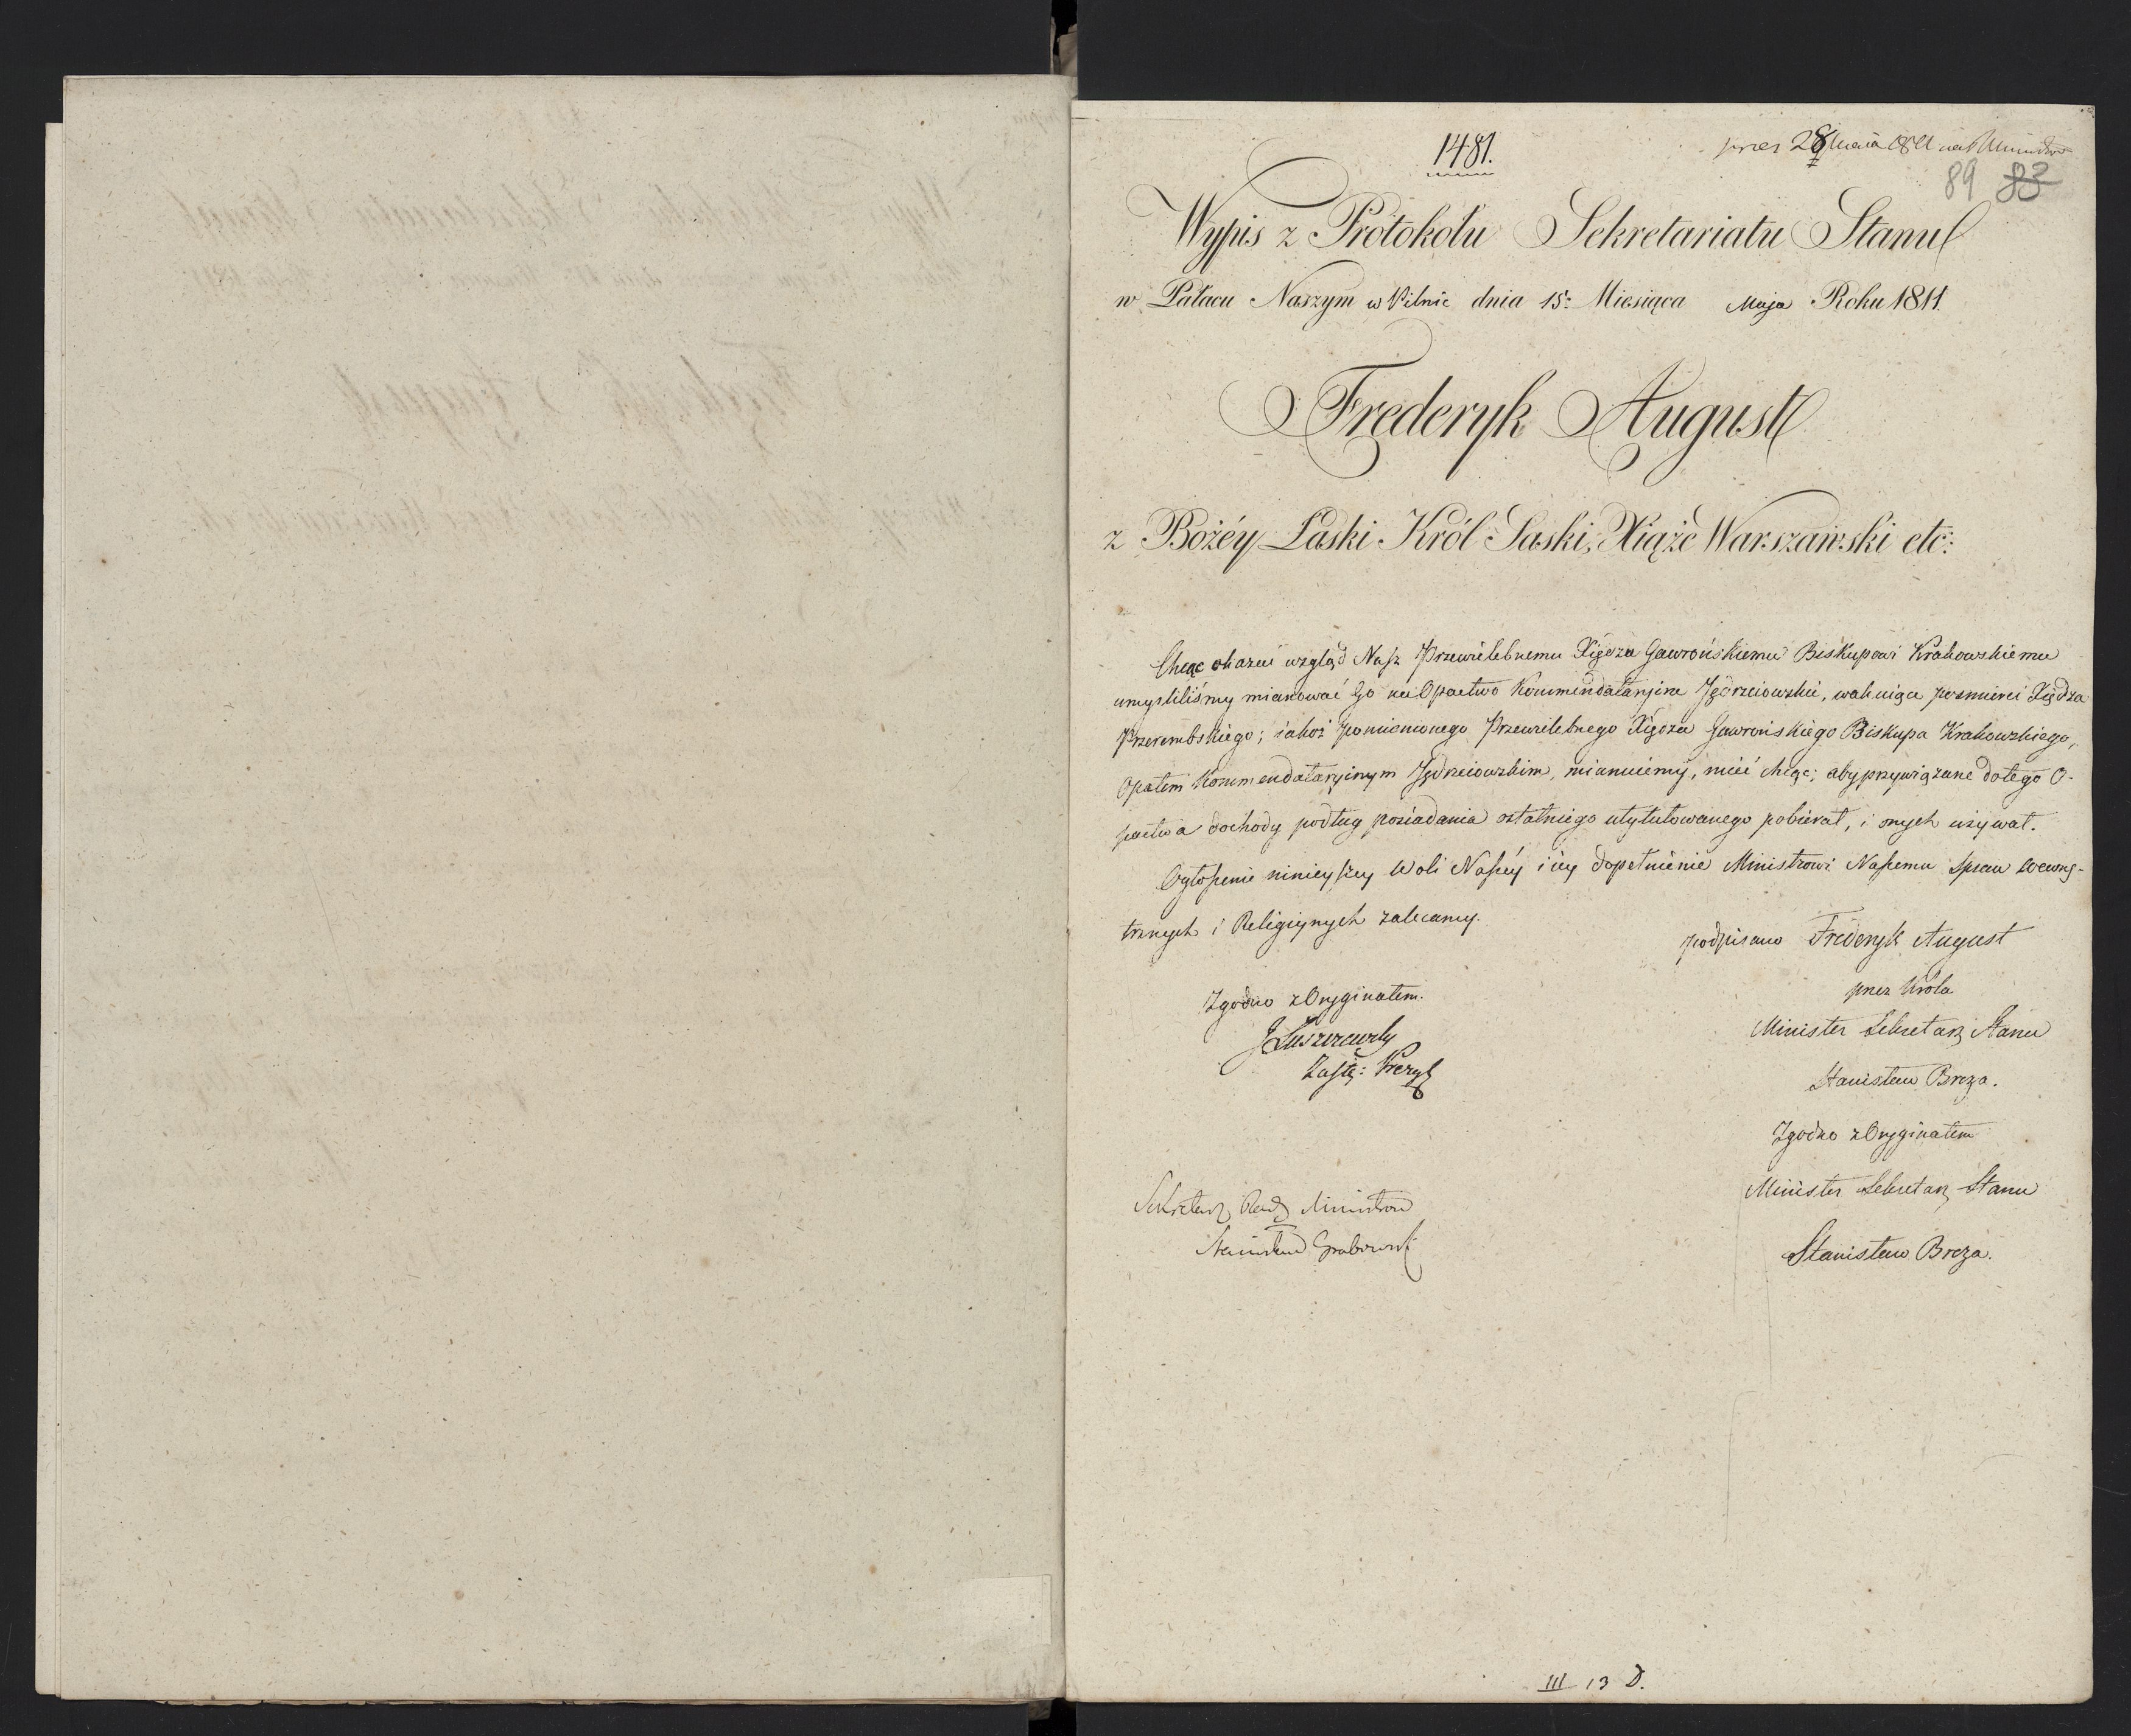 1481.
28 Maja 1811
89 83
Wypis z Protokołu Sekretariatu Stanu
w Pałacu Naszym w Pilnic dnia 15: Miesiąca Maja Roku 1811.
Frederyk August
z Bożéy Łaski Król Saski, Xiąże Warszawski etc:
Chcąc okazać wzgląd Nasz Przewielebnemu Xiędzu Gawrońskiemu Biskupowi Krakowskiemu
umyśliliśmy mianować Go na Opactwo Kommendataryine Jędrzeiowskie, wakuiące po śmierci Xiędza
Przerembskiego; iakoż pomienionego Przewielebnego Xiędza Gawrońskiego Biskupa Krakowskiego,
Opatem Kommendataryinym Jędrzeiowskim, mianuiemy, mieć chcąc; aby przywiązane do tego O-
pactwa dochody podług posiadania ostatniego utytułowanego pobierał, i onych używał.
Ogłoszenie ninieyszey Woli Naszéy i iey dopełnienie Ministrowi Naszemu Spraw Wewnę-
trznych i Religiynych zalecamy.
podpisano Frederyk August
przez Króla
Minister Sekretarz Stanu
Stanisław Breza.
Zgodno z Oryginałem
Minister Sekretarz Stanu
Stanisław Breza.
Zgodno z Oryginałem.
J Łuszczewsky
Zastę: Prezyd
Sekretarz Rady Ministrów
Stanisław Grabowski
III 13 D.